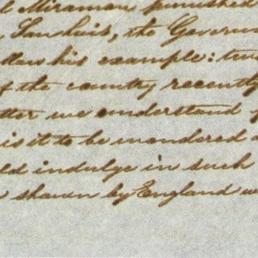 l Miramon punished
San Luis, the Govern
llow his example: tw
f the country recently
tter we understand
is it to be wondered a
ld indulge in such
shown by England w